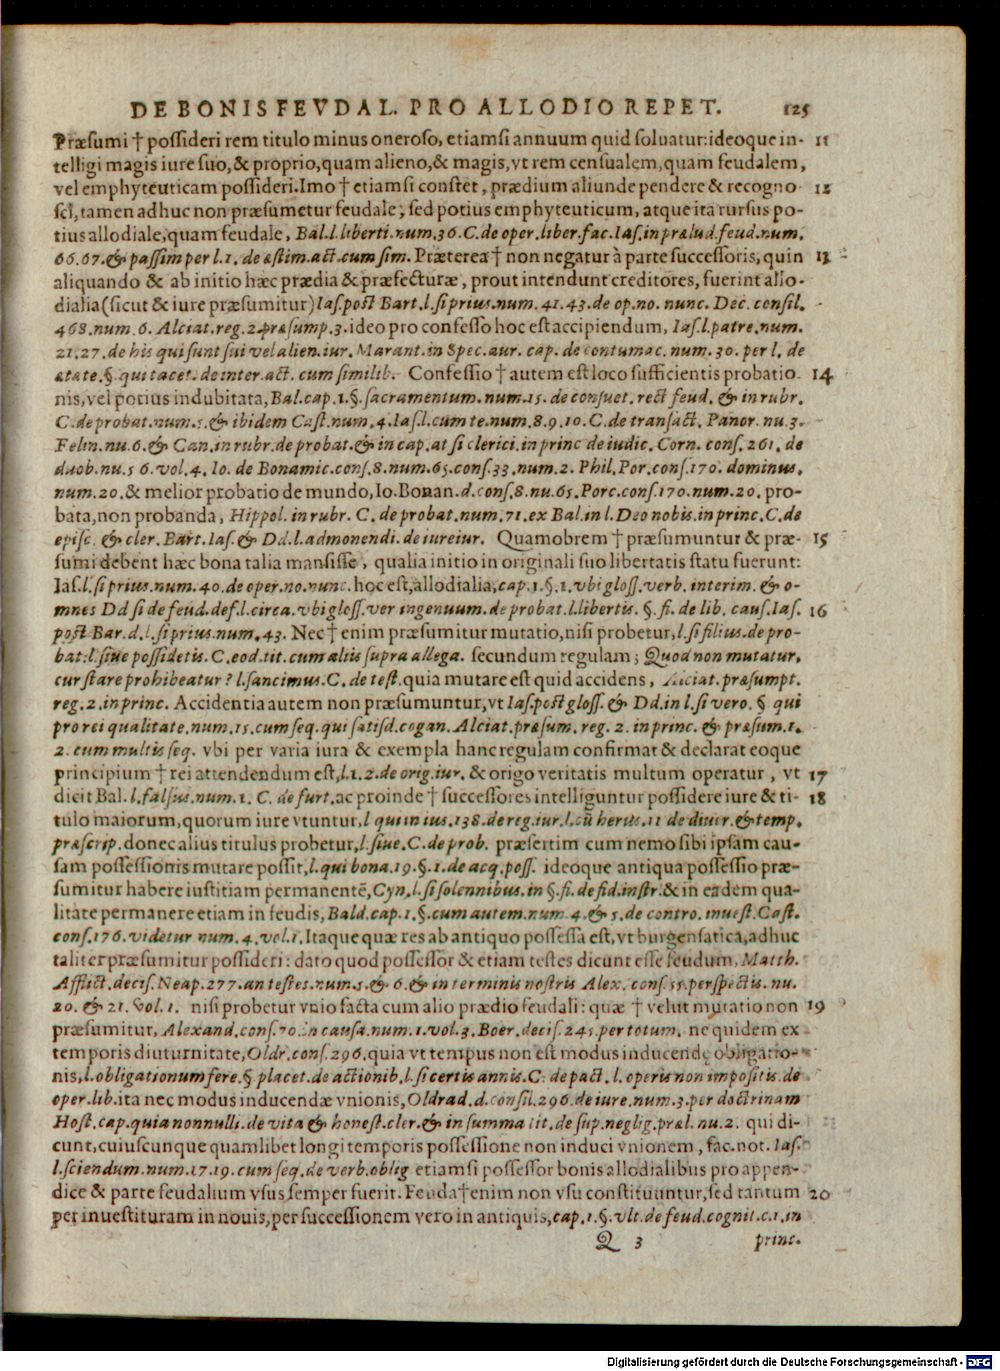 DE BONIS FEVDAL. PRO ALLODIO REPET. 125
Præsumi † possideri rem titulo minus oneroso, etiamsi annuum quid soluatur: ideoque in- 11
telligi magis iure suo, & proprio, quam alieno, & magis, vt rem censualem, quam feudalem,
vel emphyteuticam possideri. Imo † etiamsi constet, prædium aliunde pendere & recogno 12
sci, tamen adhuc non præsumetur feudale, sed potius emphyteuticum, atque ita rursus po-
tius allodiale, quam feudale, Bal. l. liberti. num. 36. C. de oper. liber. fac. Ias. in prælud. feud. num.
66. 67. & passim per l. 1. de æstim. act. cum sim. Præterea † non negatur à parte successoris, quin 13
aliquando & ab initio hæc prædia & præfecturæ, prout intendunt creditores, fuerint allo-
dialia (sicut & iure præsumitur) Ias. post Bart. l. si prius. num. 41. 43. de op. no. nunc. Dec. consil.
468. num. 6. Alciat. reg. 2. præsump. 3. ideo pro confesso hoc est accipiendum, Ias. l. patre. num.
21. 27. de his qui sunt sui vel alien. iur. Marant. in Spec. aur. cap. de contumac. num. 30. per l. de
ætate. §. qui tacet. de inter. act. cum similib. Confessio † autem est loco sufficientis probatio 14
nis, vel potius indubitata, Bal. cap. 1. §. sacramentum. num. 15. de consuet. rect feud. & in rubr.
C. de probat. num. 5. & ibidem Cast. num. 4. Ias. l. cum te. num. 8. 9. 10. C. de transact. Panor. nu. 3.
Felin. nu. 6. & Can. in rubr. de probat. & in cap. at si clerici. in princ de iudic. Corn. cons. 261. de
duob. nu. 5 6. vol. 4. Io. de Bonamic. cons. 8. num. 65. cons. 33. num. 2. Phil. Por. cons. 170. dominus.
num. 20. & melior probatio de mundo, Io. Bonan. d. cons. 8. nu. 65. Porc. cons. 170. num. 20. pro-
bata, non probanda, Hippol. in rubr. C. de probat. num. 71. ex Bal. in l. Deo nobis. in princ. C. de
episc. & cler. Bart. Ias. & Dd. l. admonendi. de iureiur. Quamobrem † præsumuntur & præ- 15
sumi debent hæc bona talia mansisse, qualia initio in originali suo libertatis statu fuerunt:
Ias. l. si prius. num. 40. de oper. no. nunc. hoc est, allodialia, cap. 1. §. 1. vbi gloss. verb. interim. & o-
mnes Dd si de feud. def. l. circa. vbi gloss. ver ingenuum. de probat. l. libertis. §. fi. de lib. caus. Ias. 16
post Bar. d. l. si prius. num. 43. Nec † enim præsumitur mutatio, nisi probetur, l. si filius. de pro-
bat. l. siue possidetis. C. eod. tit. cum aliis supra allega. secundum regulam; Quod non mutatur,
cur stare prohibeatur? l. sancimus. C. de test. quia mutare est quid accidens, Alciat. præsumpt.
reg. 2. in princ. Accidentia autem non præsumuntur, vt Ias. post gloss. & Dd. in l. si vero. § qui
pro rei qualitate. num. 15. cum seq. qui satisd. cogan. Alciat. præsum. reg. 2. in princ. & præsum. 1.
2. cum multis seq. vbi per varia iura & exempla hanc regulam confirmat & declarat eoque
principium † rei attendendum est, l. 1. 2. de orig. iur. & origo veritatis multum operatur, vt 17
dicit Bal. l. falsus. num. 1. C. de furt. ac proinde † successores intelliguntur possidere iure & ti- 18
tulo maiorum, quorum iure vtuntur, l qui in ius. 138. de reg. iur. l. cũ heres. 11 de diuer. & temp.
præscrip. donec alius titulus probetur, l. siue. C. de prob. præsertim cum nemo sibi ipsam cau-
sam possessionis mutare possit, l. qui bona. 19. §. 1. de acq. poss. ideoque antiqua possessio præ-
sumitur habere iustitiam permanentẽ, Cyn. l. si solennibus. in §. fi. de fid. instr. & in eadem qua-
litate permanere etiam in feudis, Bald. cap. 1. §. cum autem. num 4. & 5. de contro. inuest. Cast.
cons. 176. videtur num. 4. vol. 1. Itaque quæ res ab antiquo possessa est, vt burgensatica, adhuc
taliter præsumitur possideri: dato quod possessor & etiam testes dicunt esse feudum, Matth.
Afflict. decis. Neap. 277. an testes. num. 5. & 6. & in terminis nostris Alex. cons. 55. perspectis. nu.
20. & 21. Vol. 1. nisi probetur vnio facta cum alio prædio feudali: quæ † velut mutatio non 19
præsumitur, Alexand. cons. 70. in causa. num. 1. vol. 3. Boer. decis. 245. per totum. ne quidem ex
temporis diuturnitate, Oldr. cons. 296. quia vt tempus non est modus inducendę obligatio-
nis, l. obligationum fere. §. placet. de actionib. l. si certis annis. C. de pact. l. operis non impositis. de
oper. lib. ita nec modus inducendæ vnionis, Oldrad. d. consil. 296. de iure. num. 3. per doctrinam
Host. cap. quia nonnulli. de vita & honest. cler. & in summa tit. de sup. neglig. præl. nu. 2. qui di-
cunt, cuiuscunque quamlibet longi temporis possessione non induci vnionem, fac. not. Ias.
l. sciendum. num. 17. 19. cum seq. de verb. oblig etiamsi possessor bonis allodialibus pro appen-
dice & parte feudalium vsus semper fuerit. Feuda † enim non vsu constituuntur, sed tantum 20
per inuestituram in nouis, per successionem vero in antiquis, cap. 1. §. vlt. de feud. cognit. c. 1. in
Q 3 princ.
Digitalisierung gefördert durch die Deutsche Forschungsgemeinschaft - DFG